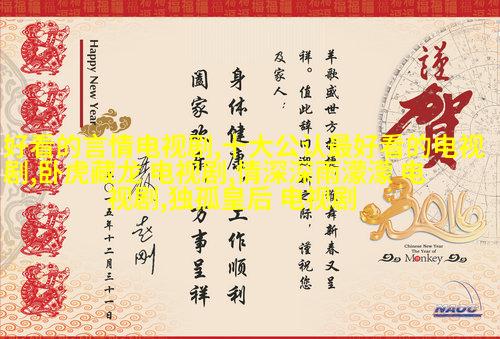 好看的言情电视剧,十大公认最好看的电视
剧,卧虎藏龙 电视剧,情深深雨濛濛 电
视剧,独孤皇后 电视剧
謹賀
2016
Chinese New Year
The Year of the
Monkey
NAOC
羊歌盛世方 舞新春又呈
祥。值此辞旧迎新之际，谨祝您
及家人：
身体健康 工作顺利
阖家欢乐 万事呈祥
五年十二月三十一日
Happy New Year